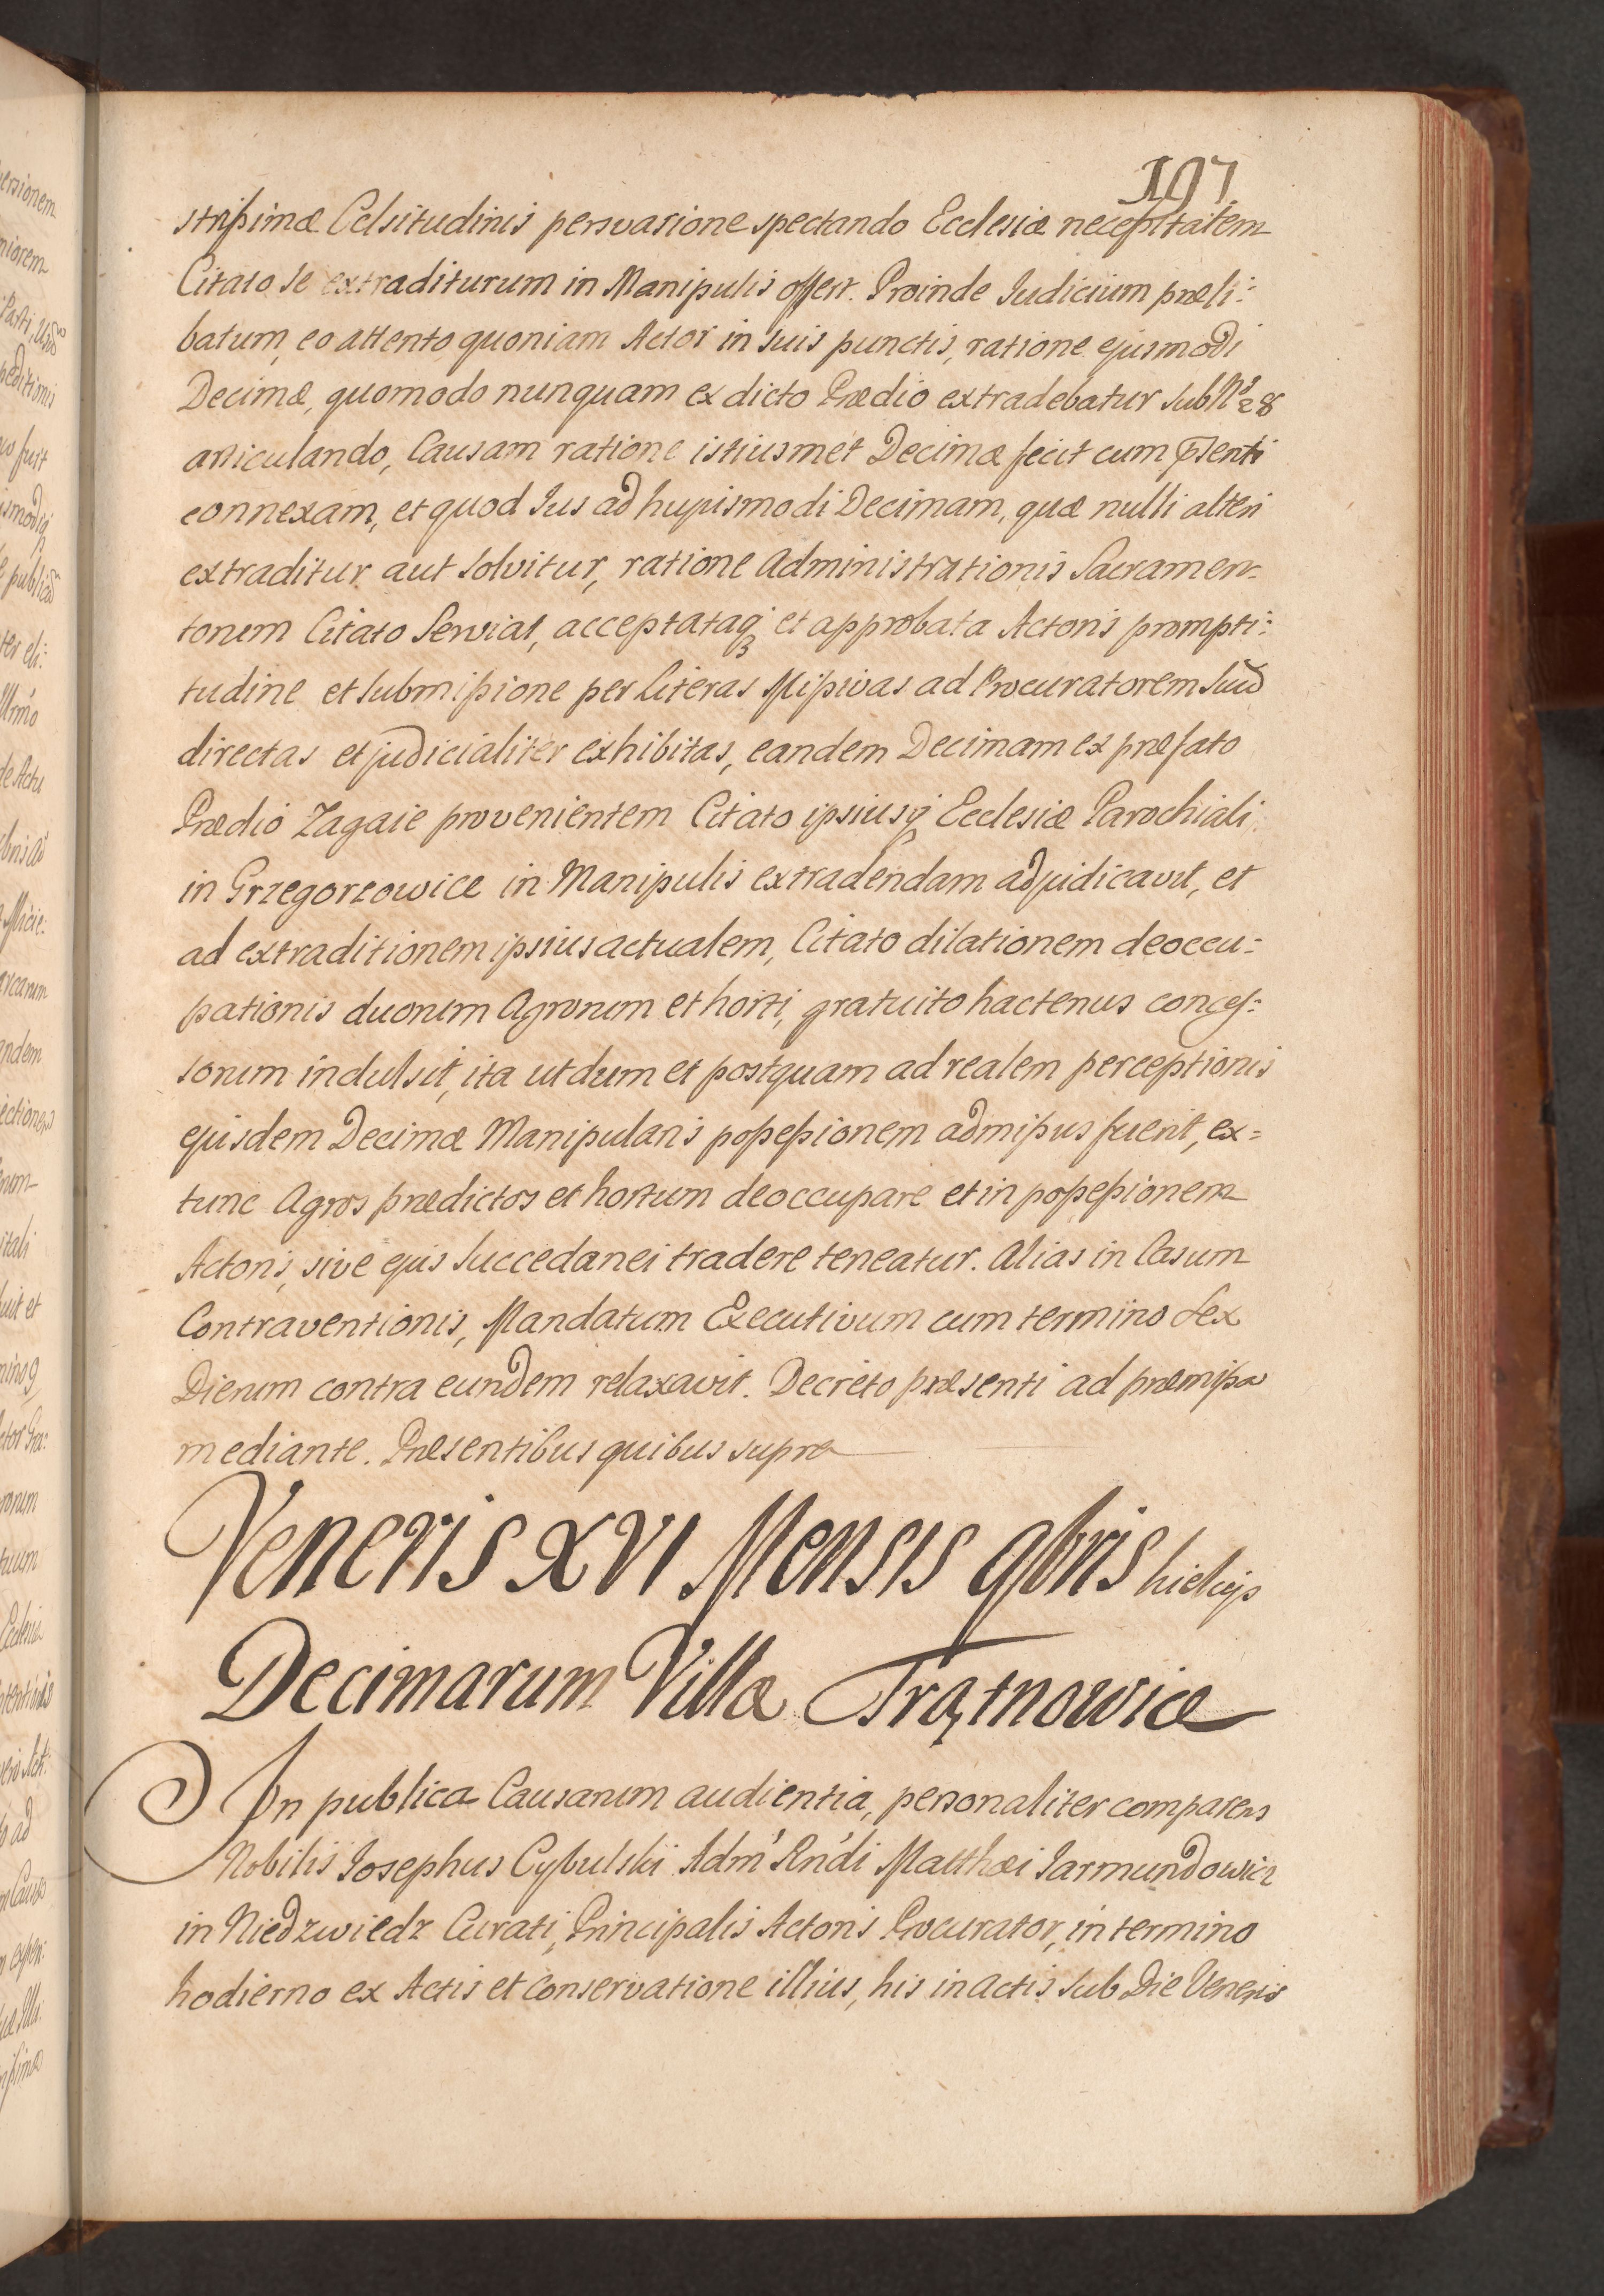 197
strissimæ Celsitudinis persvasione spectando Ecclesiæ necessitatem
Citato se extraditurum in Manipulis offert. Proinde Iudicium præli:
batum, eo attento quoniam Actor in suis punctis, ratione ejusmodi
Decimæ, quomodo nunquam ex dicto Prædio extradebatur sub Nº 28
articulando, Causam ratione istiusmet Decimæ fecit cum p̄senti
connexam, et quod Ius ad hujusmodi Decimam, quæ nulli alteri
extraditur aut solvitur, ratione Administrationis Sacramen-
torum Citato Serviat, acceptataq3 et approbata Actoris prompti:
tudine et submissione per Literas Missivas ad Procuratorem suũ
directas et judicialiter exhibitas, eandem Decimam ex præfato
Prædio Zagaie provenientem Citato ipsiusq Ecclesiæ Parochiali
in Grzegorzowice in Manipulis extradendam adjudicavit, et
ad extraditionem ipsius actualem, Citato dilationem deoccu:
pationis duorum Agrorum et horti, gratuito hactenus conces:
sorum indulsit, ita ut dum et postquam ad realem perceptionis
ejusdem Decimæ Manipularis possessionem admissus fuerit, ex=
tunc Agros prædictos et hortum deoccupare et in possessionem
Actoris, sive ejus Succedanei tradere teneatur. Alias in Casum
Contraventionis, Mandatum Executivum cum termino sex
Dierum contra eundem relaxavit. Decreto præsenti ad præmissa
mediante. Præsentibus quibus supra
Veneris XVI Mensis 9bris
Decimarum Villæ Trątnowice
In publica Causarum audientia, personaliter comparens
Nobilis Iosephus Cybulski Adm' Rn'di Matthæi Iarmundowicz
in Niedzwiedz Curati, Principalis Actoris Procurator, in termino
hodierno ex Actis et Conservatione illius, his in actis sub Die Veneris